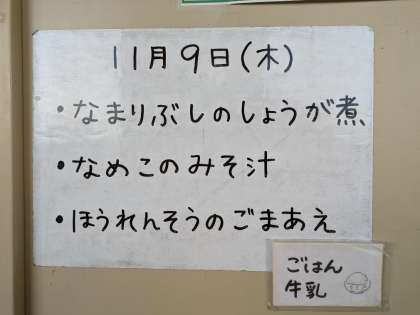 11月9日(木)
・なまりぶしのしょうが煮
・なめこのみそ汁
・ほうれんそうのごまあえ
ごはん
牛乳